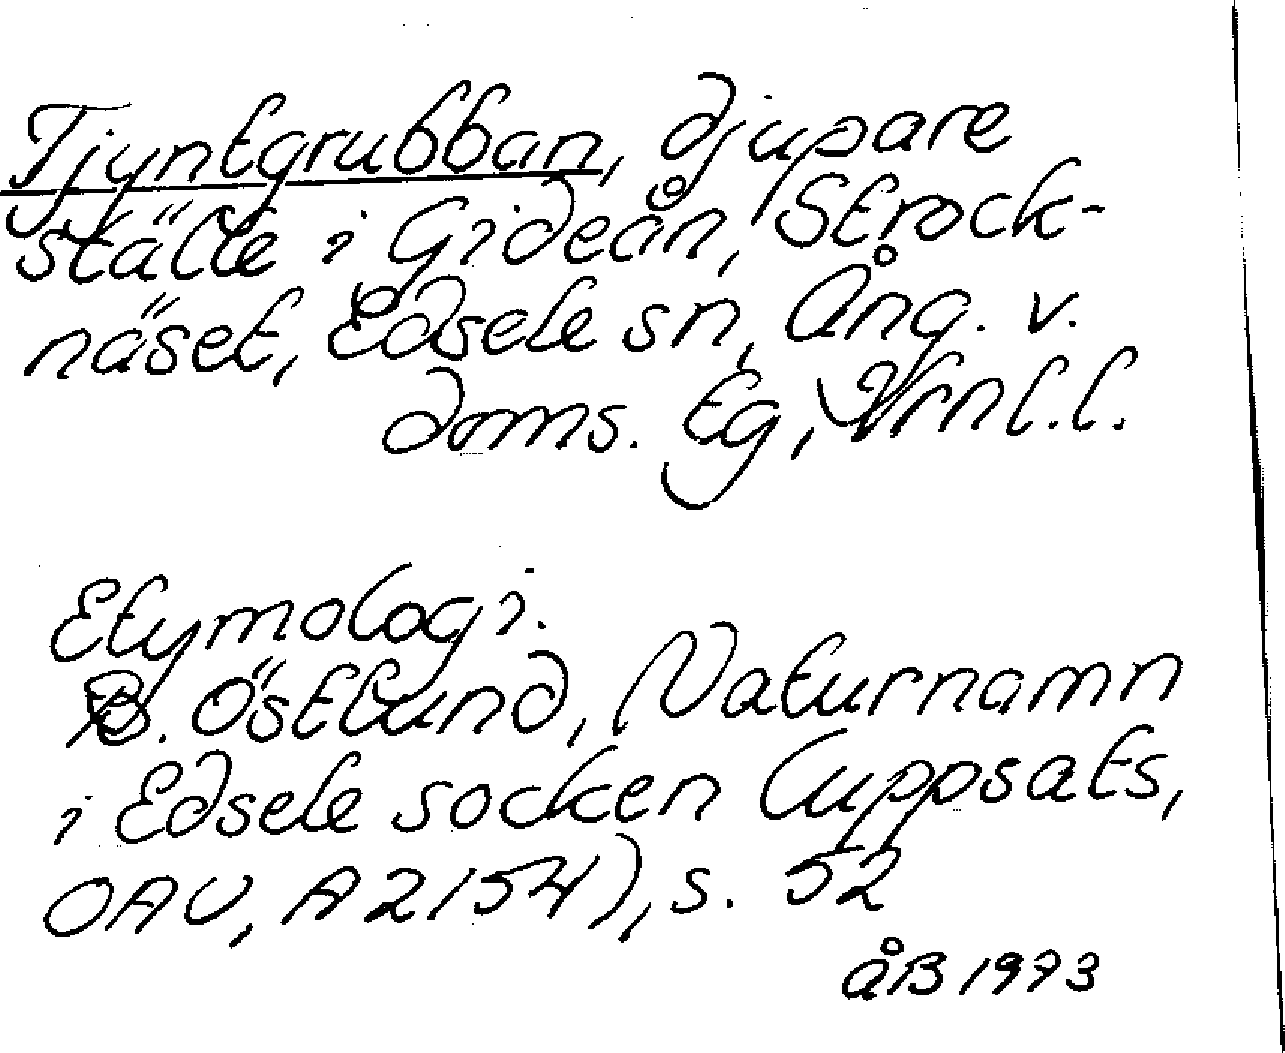 Tjyntgrubban, djupare
ställe i Gideån, Strock-
näset, Edsele sn, Ång. v.
doms. Eg, Vrnl.l.
Etymologi.
B. Östlund, Naturnamn
i Edsele socken (uppsats,
OAU, A2154), s. 52
åB 1993